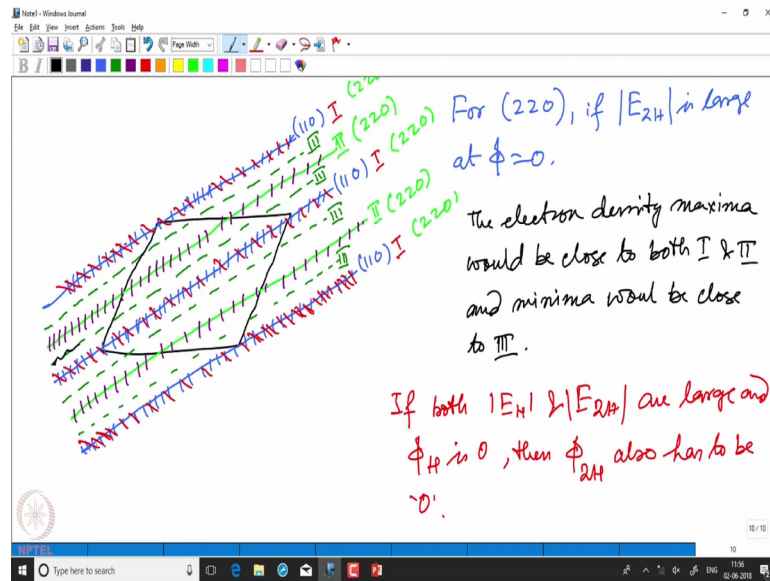 Note1 - Windows Journal
File Edit View Insert Actions Tools Help
Page Width
B I
(110) I (220)
III
II (220)
III
(110) I (220)
III
II (220)
III
(110) I (220)
For (220), if |E2H| is large
at ϕ = 0.
The electron density maxima
would be close to both I & II
and minima woul be close
to III.
If both |EH| & |E2H| are large and
ϕH is 0, then ϕ2H also has to be
'0'.
10/10
NPTEL
10
Type here to search
ENG
11:56
02-06-2018